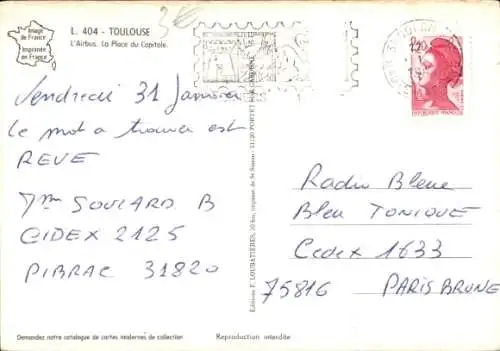 Image
de France
Imprimée
en France
L. 404 - TOULOUSE
L'Airbus. La Place du Capitole.
3€
2,20
REPUBLIQUE FRANÇAISE
Vendredi 31 Janvier
le mot a trouver est
REVE
Mme SOULARD B
CIDEX 2125
PIBRAC 31820
Radio Bleue
Bleu TONIQUE
Cedex 1633
75816 PARIS BRUNE
Demandez notre catalogue de cartes modernes de collection
Reproduction interdite